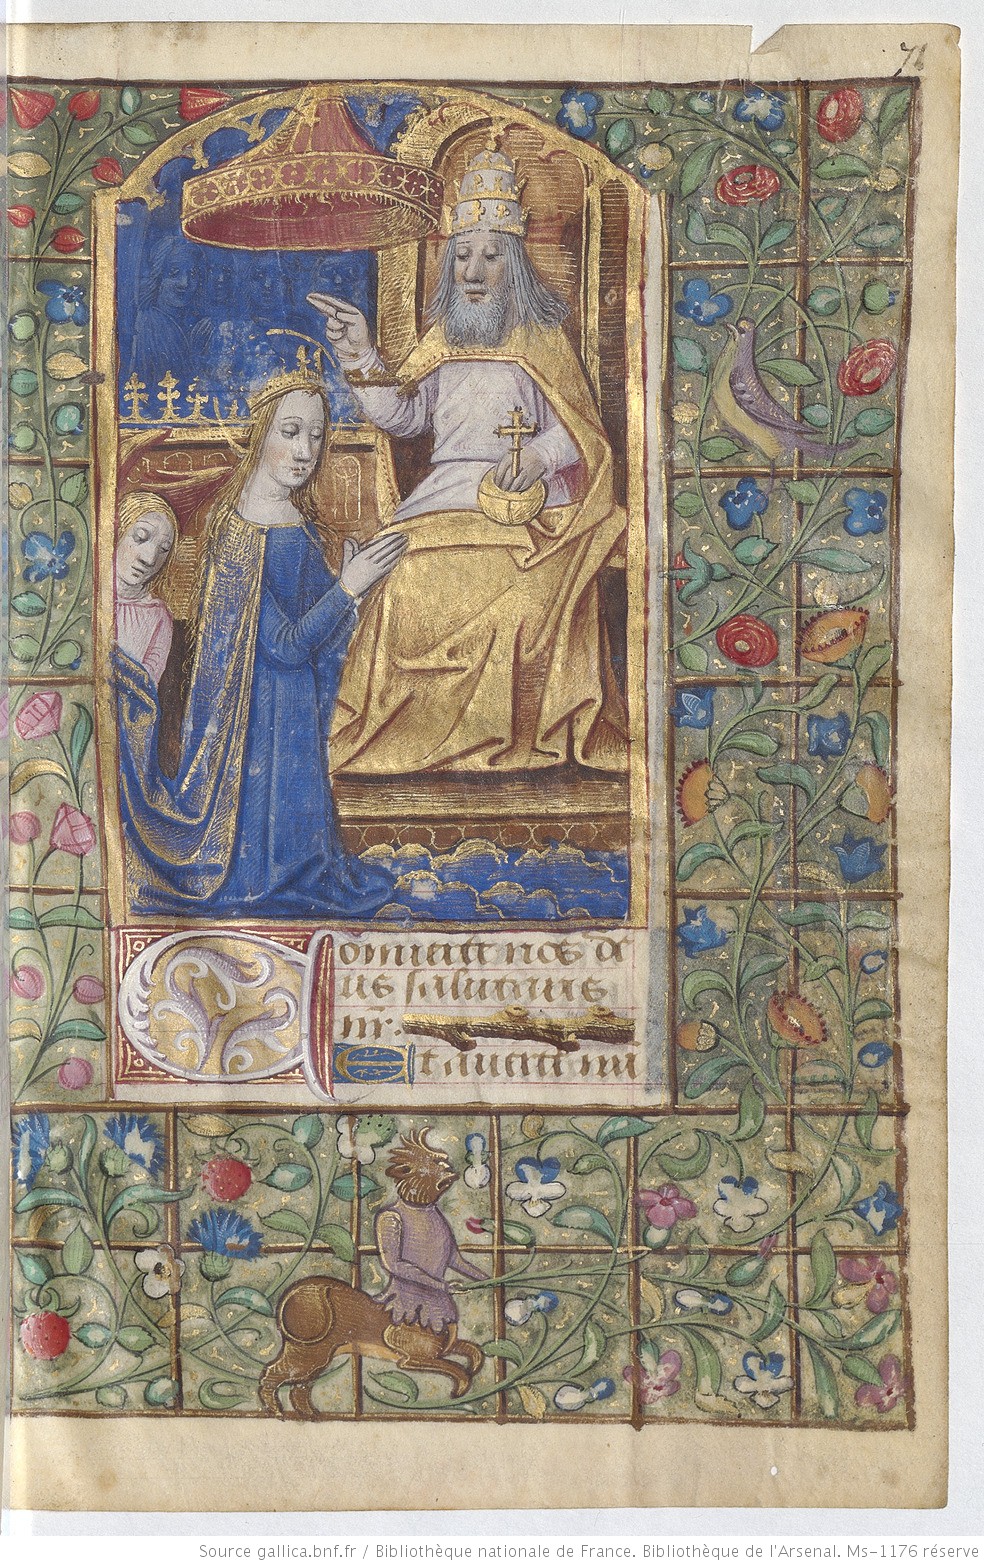 71
Conuertt nos de
us salutaris
nr̄.
Et auertt irā
Source gallica.bnf.fr / Bibliothèque nationale de France. Bibliothèque de l'Arsenal. Ms-1176 réserve